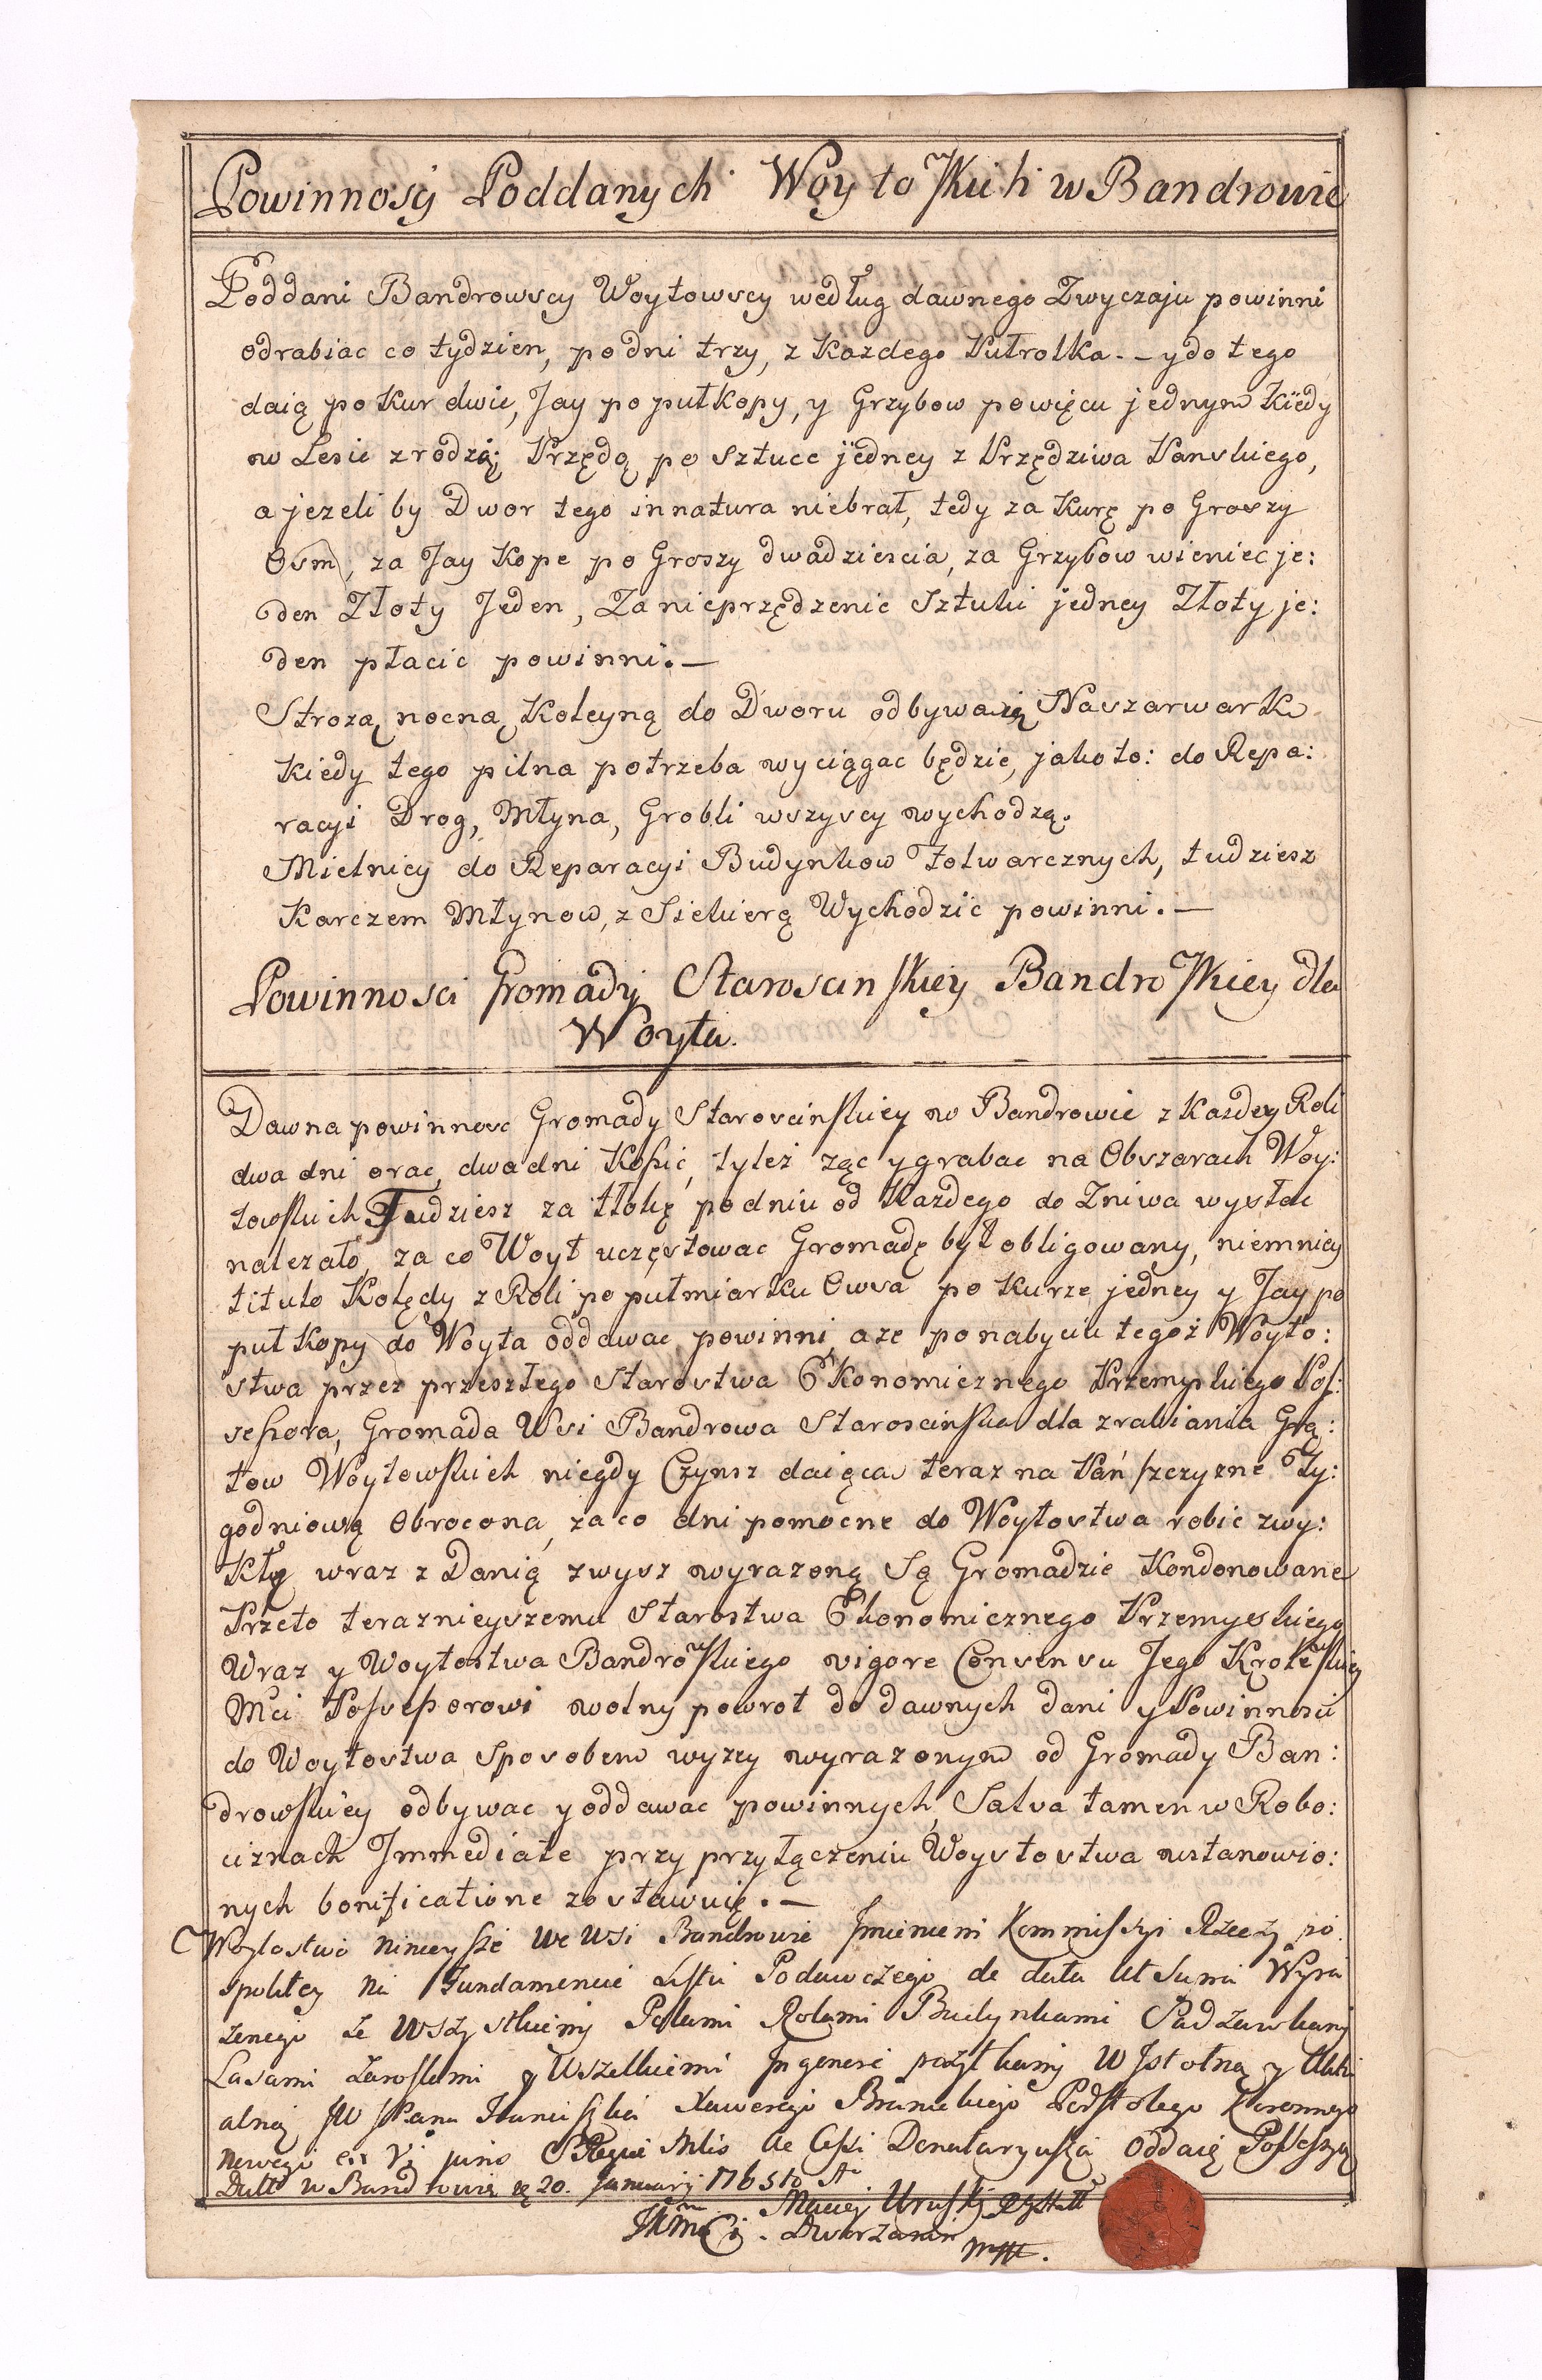 Powinnosy Poddanych Woyto skich w Bandrowie
Poddani Bandrowscy Woytowscy według dawnego Zwyczaju powinni
odrabiac co tydzien, po dni trzy, z Kazdego Pułrolka._ y do tego
daią po Kur dwie, Jay po puł kopy, y Grzybow powięcu jednym Kiedy
w Lesie zrodzą; Przędą po sztuce jedney z Przędziwa Panskiego,
a jezeli by Dwor tego in natura niebrał, tedy za Kurę po Groszy
Osm, za Jay Kope po Groszy dwadziescia, za Grzybow wieniec je:
den Złoty Jeden, Za nieprzędzenie Sztuki jedney Złoty je:
den płacic powinni._
Strozą nocną Koleyną do Dworu odbywaią Naszarwark
Kiedy tego pilna potrzeba wyciągac będzie, jako to: do Repa:
racyi Drog, Młyna, Grobli wszyscy wychodzą.
Mielnicy do Reparacyi Budynkow Folwarcznych, tudziesz
Karczem Młynow, z Siekierą Wychodzic powinni._
Powinnosci Gromady Staroscinskiey Bandroskiey dla
Woyta.
Dawna powinnosc Gromady Staroscinskiey w Bandrowie z Kazdey Roli
dwa dni orac, dwa dni Kosic, tylez ząc y grabac na Obszarach Woy:
towskich Tudziesz za tłokę po dniu od Kazdego do Zniwa wysłac
nalezało, za co Woyt uczęstowac Gromadę był obligowany, niemniey
titulo Kolędy z Roli po pułmiarku Owsa po Kurze jedney y Jay po
puł Kopy do Woyta oddawac powinni, a ze po nabyciu tegoz Woyto:
stwa przez przeszłego Starostwa Ekonomicznego Przemyskiego Pos:
sessora, Gromada Wsi Bandrowa Staroscinska dla zrabiania Grą:
tow Woytowskich niegdy Czynsz daiąca teraz na Pańszczyznę Ty:
godniową Obrocona, za co dni pomocne do Woytostwa robic zwy:
Kłe wraz z Danią zwysz wyrazoną Są Gromadzie Kondonowane
Przeto teraznieyszemu Starostwa Ekonomicznego Przemyskiego
Wraz y Woytostwa Bandroskiego vigore Consensu Jego Krolewskiey
Mci Possessorowi wolny powrot do dawnych dani y Powinnosci
do Woytostwa Sposobem wyzey wyrazonym od Gromady Ban:
drowskiey odbywac y oddawac powinnych, Salva tamen w Robo:
ciznach Immediate przy przyłączeniu Woystostwa ustanowio:
nych bonificatione zostawuię._
Woytostwo ninieysze we Wsi Bandrowie Imieniem Kommissyi Rzeczy po
spolitey na Fundamencie Listu Podawczego de data ut Supra Wyra
zonego ze Wszystkiemi Polami Rolami Budynkami Sadzawkami
Lasami Zaroslami y Wszelkiemi In genere pozytkami W Istotną y Aktu
alną JW JPana Franciszka Xawerego Branickiego Podstolego Koronnego
nowego ex Vi juris S Regiae Mtis ac Cessi Donataryusza Oddaię Possessyą
Datt w Bandrowie de 20. January 1765to Ao
Maciej Uruski
JKMCi. Dworzanin
mpp.